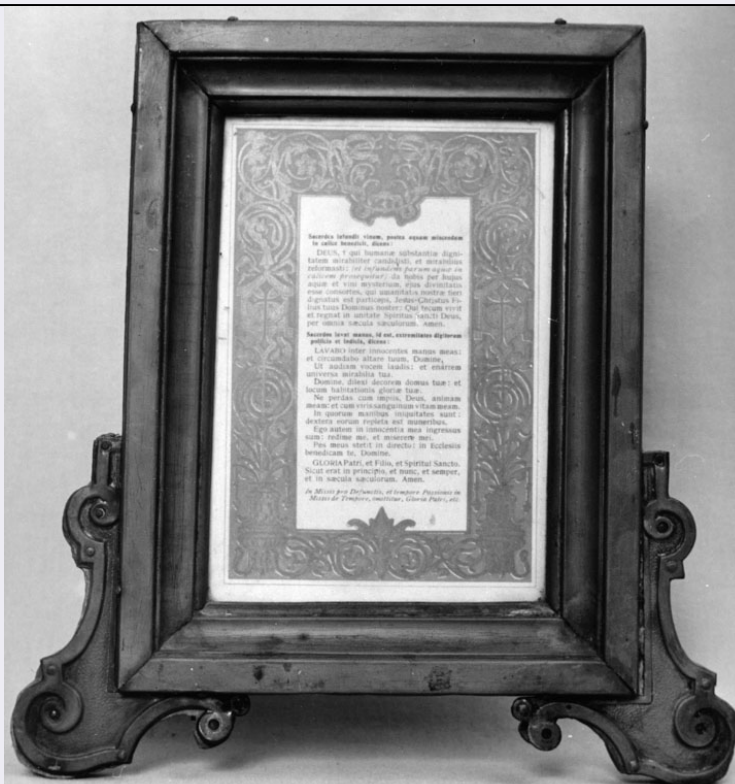 Sacerdos infundit vinum, postea aquam miscendam
in calice benedicit, dicens:
DEUS, † qui humanæ substantiæ digni-
tatem mirabiliter condidisti, et mirabilius
reformasti: (et infundens parum aquæ in
calicem prosequitur): da nobis per hujus
aquæ et vini mysterium, ejus divinitatis
esse consortes, qui humanitatis nostræ fieri
dignatus est particeps, Jesus-Christus Fi-
lius tuus Dominus noster: Qui tecum vivit
et regnat in unitate Spiritus Sancti Deus,
per omnia sæcula sæculorum. Amen.
Sacerdos lavat manus, id est, extremitates digitorum
pollicis et indicis, dicens:
LAVABO inter innocentes manus meas:
et circumdabo altare tuum, Domine,
Ut audiam vocem laudis: et enarrem
universa mirabilia tua.
Domine, dilexi decorem domus tuæ: et
locum habitationis gloriæ tuæ.
Ne perdas cum impiis, Deus, animam
meam: et cum viris sanguinum vitam meam.
In quorum manibus iniquitates sunt:
dextera eorum repleta est muneribus.
Ego autem in innocentia mea ingressus
sum: redime me, et miserere mei.
Pes meus stetit in directo: in Ecclesiis
benedicam te, Domine.
GLORIA Patri, et Filio, et Spiritui Sancto.
Sicut erat in principio, et nunc, et semper,
et in sæcula sæculorum. Amen.
In Missis pro Defunctis, et tempore Passionis in
Missis de Tempore, omittitur, Gloria Patri, etc